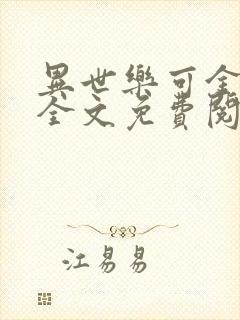 異世樂可全
全文免費閱
江易易